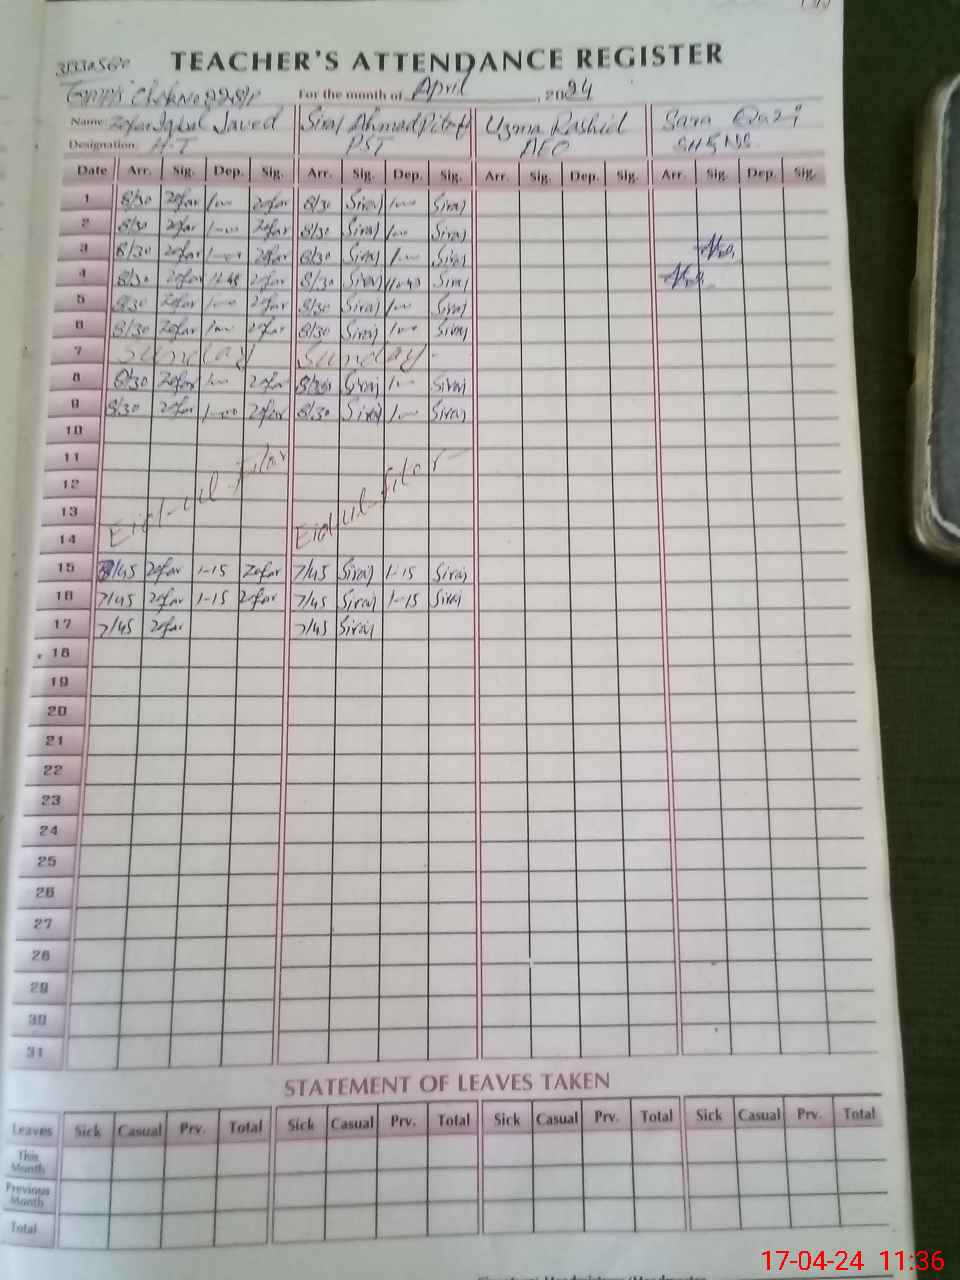 TEACHER'S ATTENDANCE REGISTER
For the month of April, 2024
Name Zafar Iqbal Javed Siraj Ahmad Uzma Rashid Sara Qazi
Designation H-T PST AEO SH&NS
Date Arr. Sig. Dep. Sig. Arr. Sig. Dep. Sig. Arr. Sig. Dep. Sig. Arr. Sig. Dep. Sig.
1 8/30 Zafar 1-00 Zafar 8/30 Siraj 1-00 Siraj
2 8/30 Zafar 1-00 Zafar 8/30 Siraj 1-00 Siraj
3 8/30 Zafar 1-00 Zafar 8/30 Siraj 1-00 Siraj
4 8/30 Zafar Zafar 8/30 Siraj Siraj
5 8/30 Zafar 1-00 Zafar 8/30 Siraj 1-00 Siraj
6 8/30 Zafar 1-00 Zafar 8/30 Siraj 1-00 Siraj
7 Sunday Sunday
8 8/30 Zafar 1-00 Zafar 8/30 Siraj 1-00 Siraj
9 8/30 Zafar 1-00 Zafar 8/30 Siraj 1-00 Siraj
10
11
12
13
14
Eid-ul Fitar Eidul-fitar
15 7/45 Zafar 1-15 Zafar 7/45 Siraj 1-15 Siraj
16 7/45 Zafar 1-15 Zafar 7/45 Siraj 1-15 Siraj
17 7/45 Zafar 7/45 Siraj
18
19
20
21
22
23
24
25
26
27
28
29
30
31
STATEMENT OF LEAVES TAKEN
Leaves Sick Casual Prv. Total Sick Casual Prv. Total Sick Casual Prv. Total Sick Casual Prv. Total
This
Month
Previous
Month
Total
17-04-24 11:36